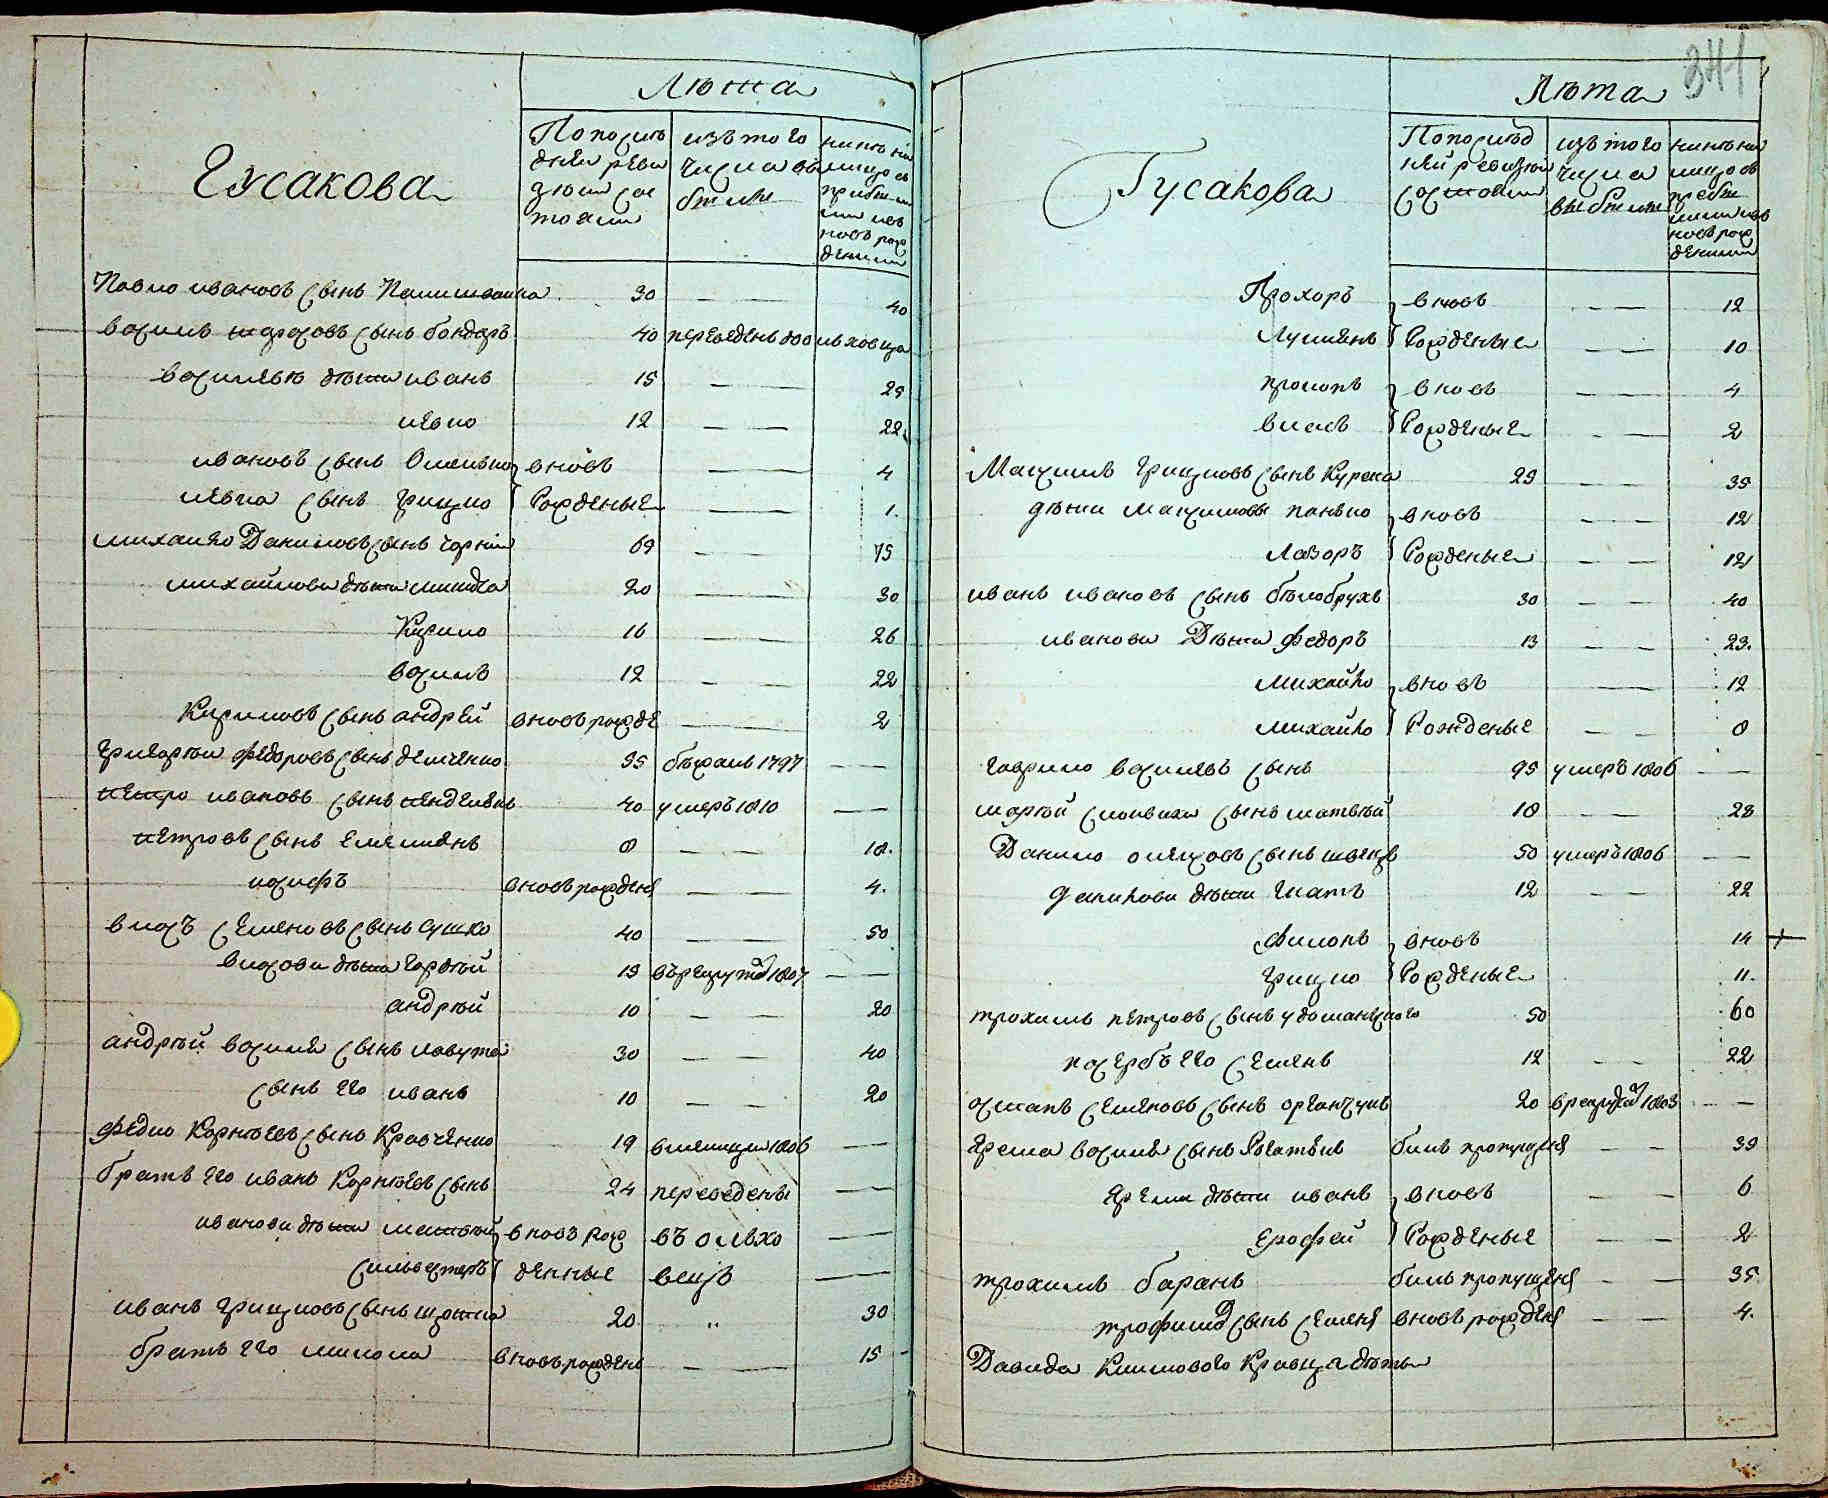 Лѣта
Гусакова
По послѣ дней реви зіи сос тояли
изъ того числа вы были
нинѣ на лицо съ прибы ли и нов рож дении
Павло ивановъ сынъ 30 — — 40
василь тарасовъ сынъ бондарь 40 переведенъ
васильевы дѣти иванъ 15 — — 25
левко 12 — — 22
ивановъ сынъ Омелько вновь — — 4
левка сынъ грицко рожденые — — 1
михайло Даниловъ сынъ чорній 69 — — 75
михайлови дѣти микита 20 — — 30
Кирило 16 — — 26
василь 12 — — 22
Кириловъ сынъ андрей вновь рожде — — 2
григорій федоровъ сынъ демченко 35 бѣжалъ 1797 — —
петро ивановъ сынъ 40 умеръ 1810 — —
петровъ сынъ емелианъ 8 — — 18
иосифъ вновь рожденъ — — 4
власъ семеновъ сынъ сушко 40 — — 50
власови дѣти гордѣй 19 въ рекруты 1807 — —
андрѣй 10 — — 20
андрѣй василіевъ сынъ 30 — — 40
сынъ его иванъ 10 — — 20
федко Корнѣевъ сынъ Кравченко 19 1806 —
братъ его иванъ Корнѣевъ сынъ 24 переведены —
иванови дѣти матвѣй вновь рож въ олхо —
сильвестръ денные вецъ —
иванъ грицковъ сынъ 20 " 30
братъ его микола вновь рожденъ — — 15
341
Лѣта
Гусакова
По послѣд ней ревизіи состояли
изъ того числа выбыли
нинѣ на лицо съ прибы лими и нов рож дении
Прохоръ вновь — — 12
Лукиянъ Рожденые — — 10
прокопъ вновь — — 4
власъ Рожденые — — 2
Максимъ грицковъ сынъ Курска 29 — — 39
дѣти максимовы панько вновь — — 12
Лазоръ Рожденые — — 12
иванъ ивановъ сынъ бѣлобрухъ 30 — — 40
иванови Дѣти федоръ 13 — — 23
михайло вновь — — 12
михайло Рожденые — — 8
гаврило васильевъ сынъ 95 умеръ 1806 —
сынъ матвѣй 18 — — 28
Данило олексовъ сынъ швецъ 50 умеръ 1806 —
данилови дѣти игнатъ 12 — — 22
филопъ вновь 14
грицко Рожденые 11
трохимъ петровъ сынъ 50 60
пасербъ его семенъ 12 — — 22
остапъ семеновъ сынъ 20 в рекруты 1803 — —
ярема василіевъ сынъ билъ пропущенъ — — 39
яреми дѣти иванъ вновь — — 6
ерофей Рожденые — — 2
трохимъ баранъ билъ пропущенъ — — 35
трофимъ сынъ семенъ вновь рожденъ — — 4
Давида Климового Кравца дѣти